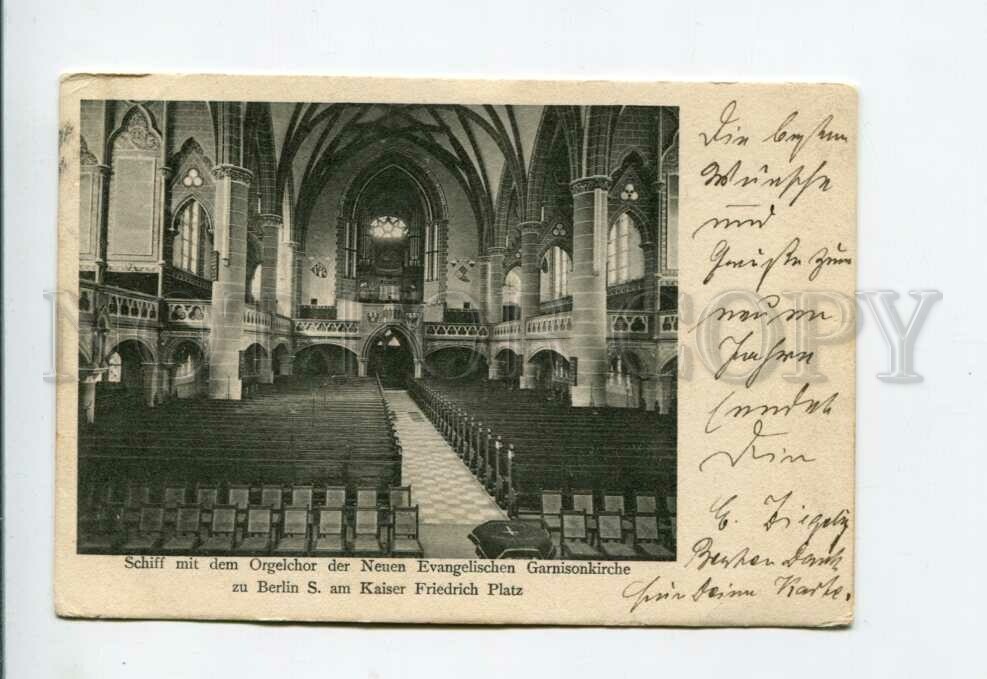 Die besten
Wünsche
und
Grüße zum
neuen
Jahre
sendet
Dein
Besten Dank
für Deine Karte.
Schiff mit dem Orgelchor der Neuen Evangelischen Garnisonkirche
zu Berlin S. am Kaiser Friedrich Platz